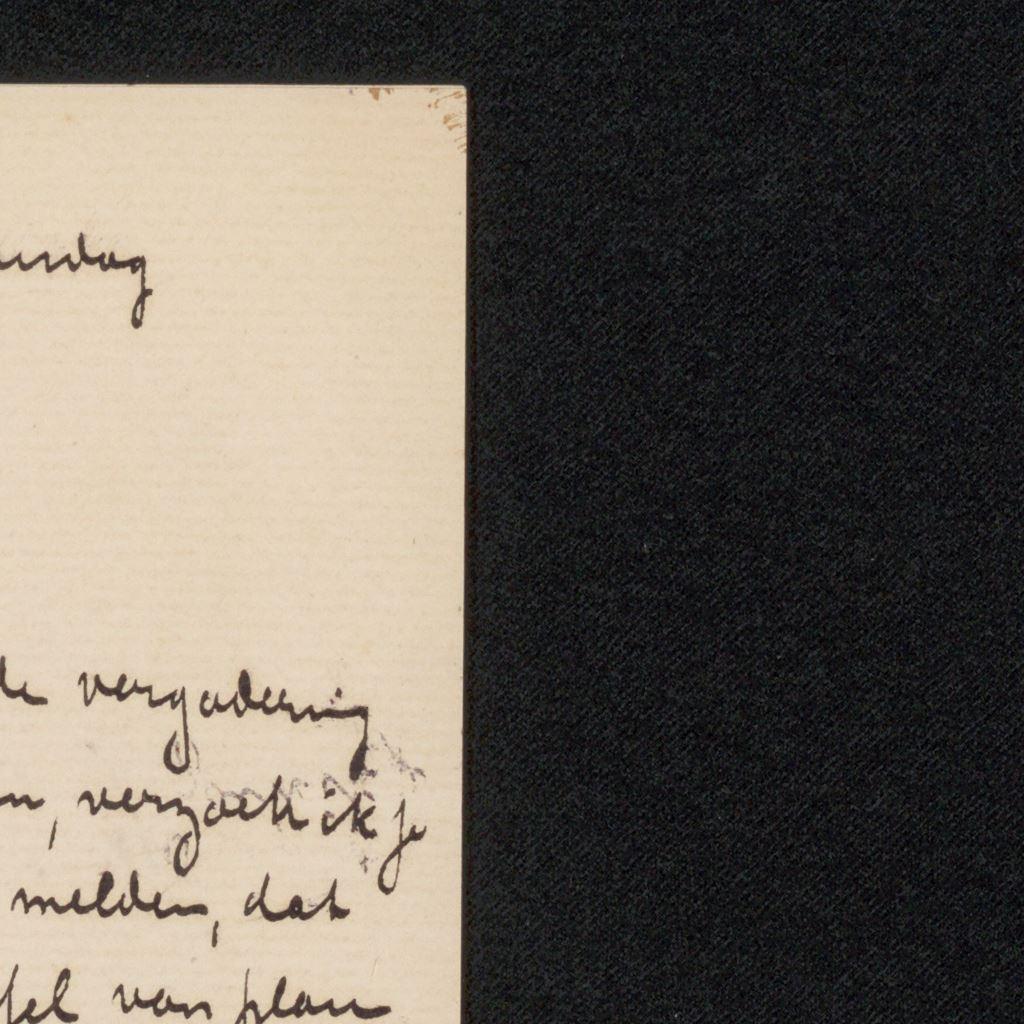 de vergadering
, verzoek ik je
melden, dat
van plan